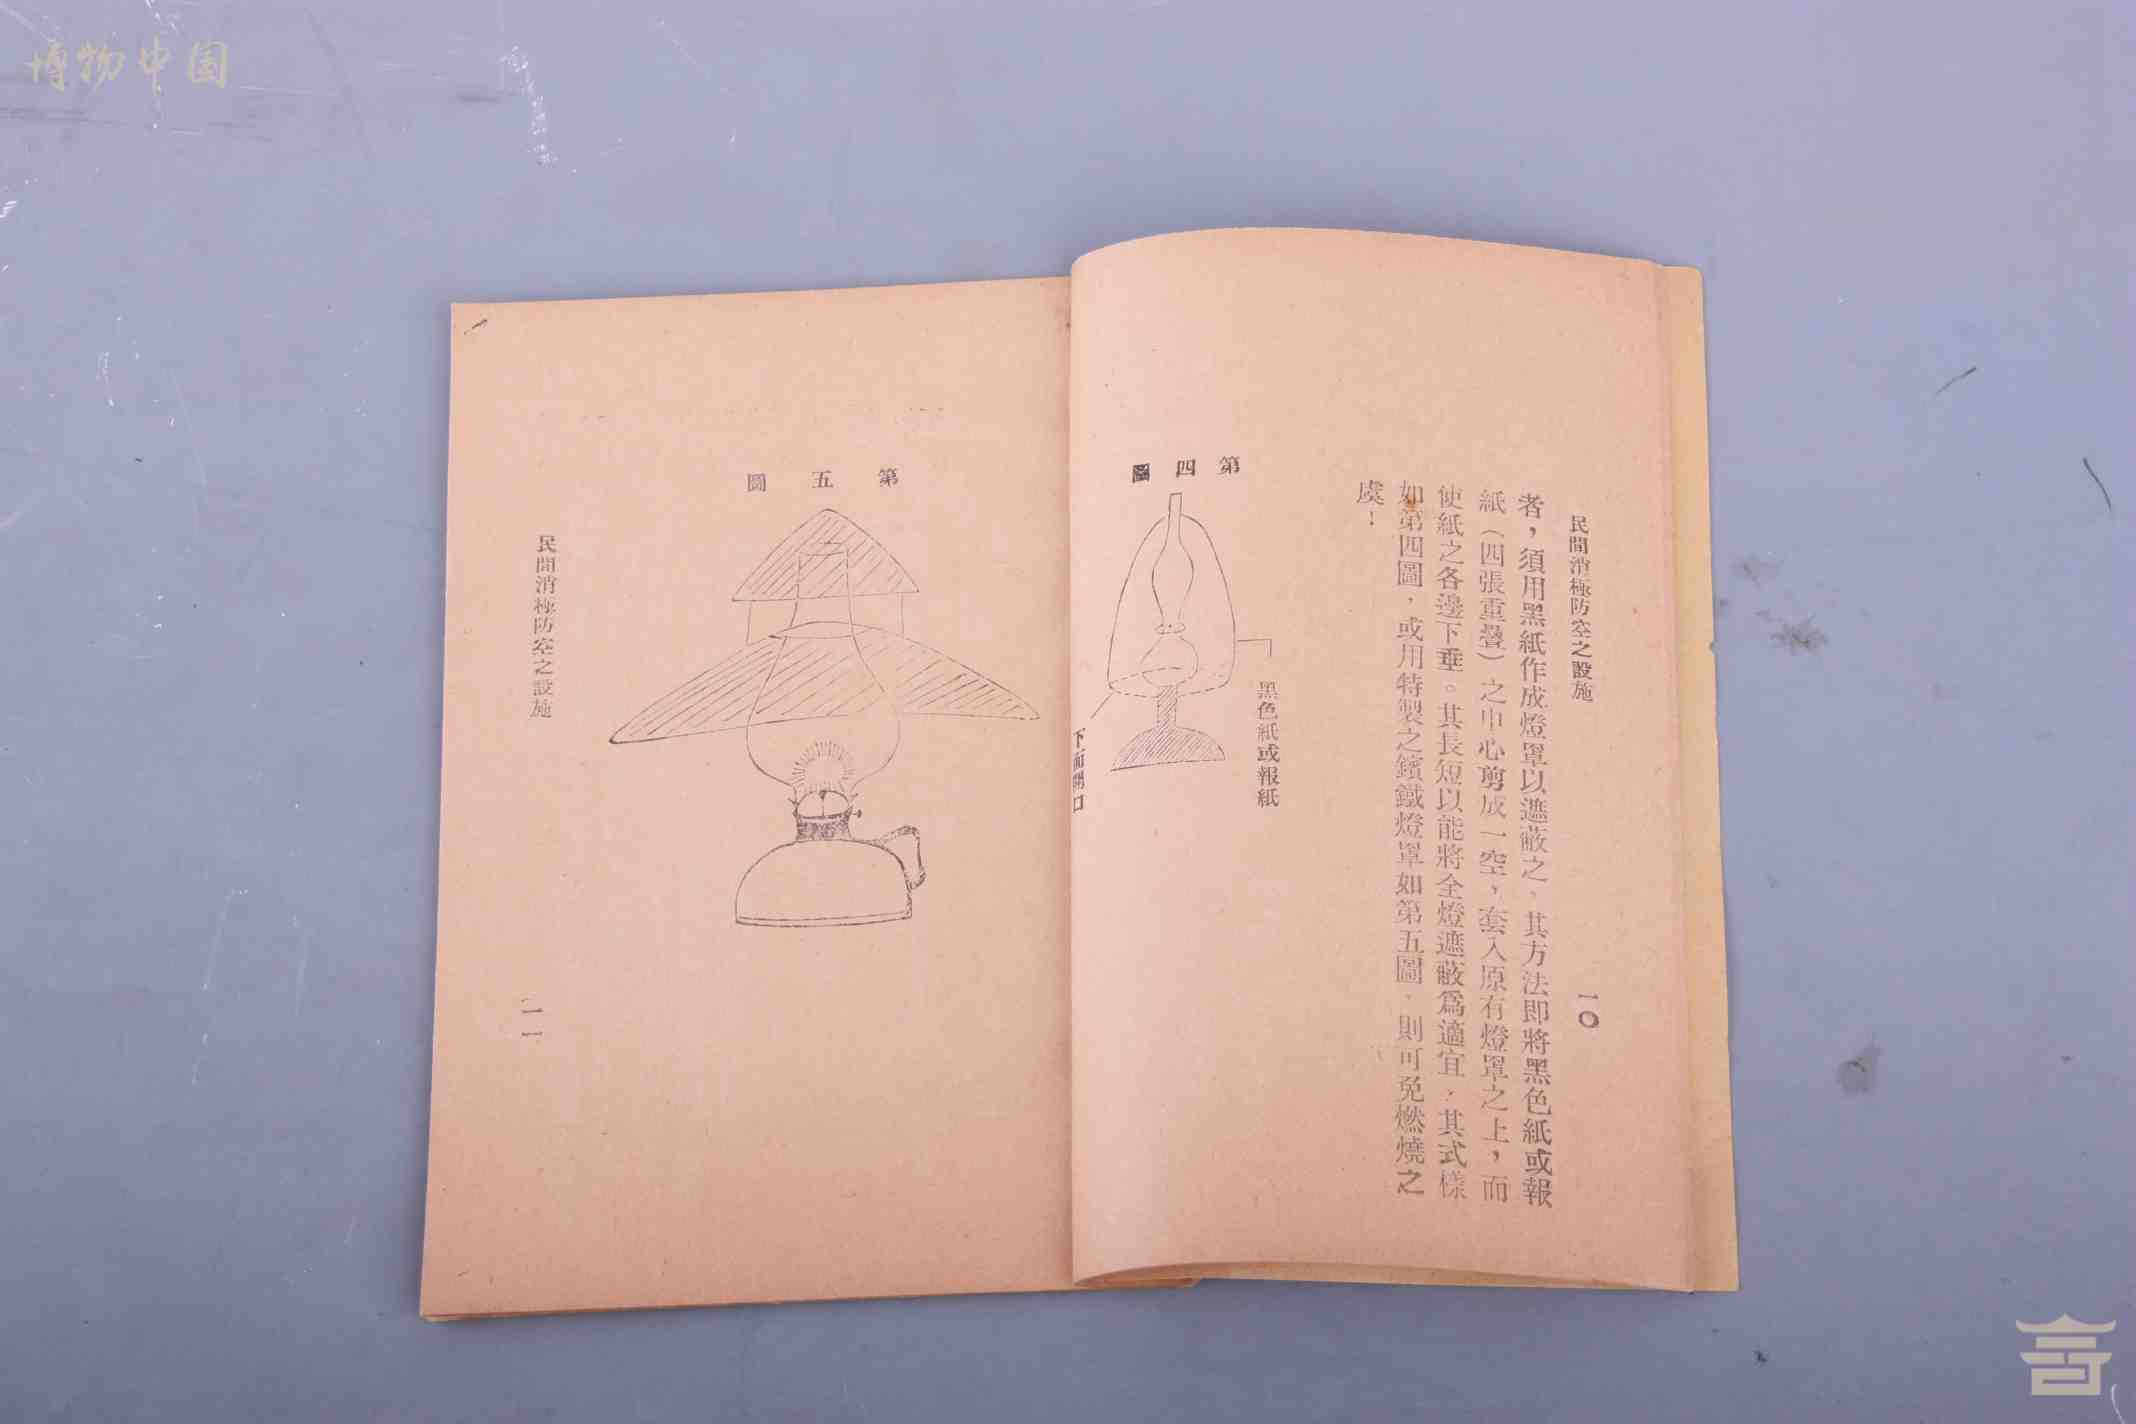 博物中国
民間消極防空之設施
一〇
者，須用黑紙作成燈罩以遮蔽之，其方法即將黑色紙或報
紙（四張重疊）之中心剪成一空，套入原有燈罩之上，而
使紙之各邊下垂。其長短以能將全燈遮蔽爲適宜，其式樣
如第四圖，或用特製之鑌鐵燈罩如第五圖，則可免燃燒之
虞！
第四圖
黑色紙或報紙
下面開口
第五圖
民間消極防空之設施
一一